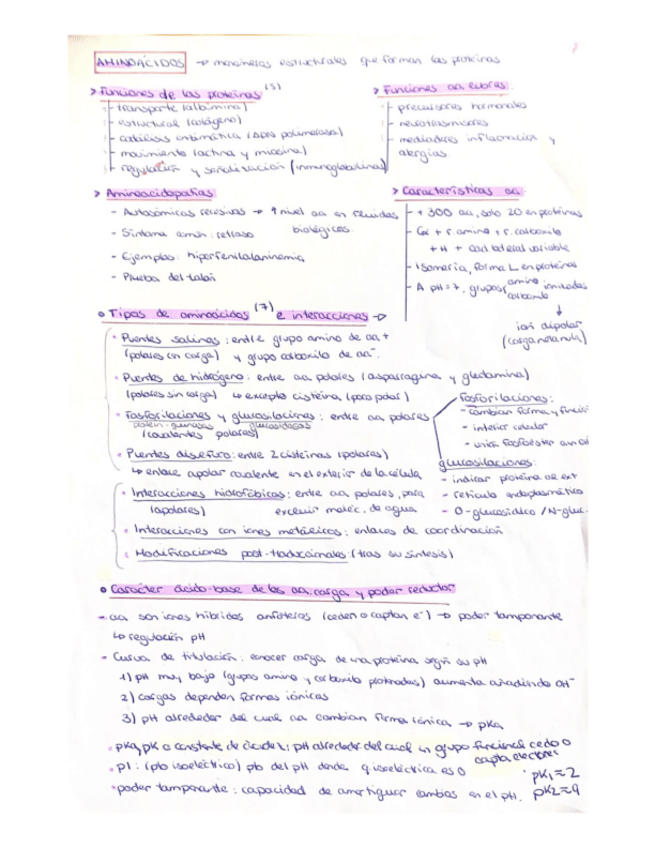 AMINOÁCIDOS → monómeros estructurales que forman las proteínas
> Funciones de las proteínas (5)
- transporte (albúmina)
- estructural (colágeno)
- catálisis enzimática (ADN polimerasa)
- movimiento (actina y miosina)
- regulación y señalización (inmunoglobulina)
> Funciones aa libres:
- precursores hormonales
- neurotrasmisores
- mediadores inflamación y
alergias.
> Aminoacidopatías
- Autosómicas recesivas → ↑ nivel aa en fluidos
biológicos.
- Síntoma común: retraso
- Ejemplos: hiperfenilalaninemia
- Prueba del talón
> Características aa:
- + 300 aa, solo 20 en proteínas
- Cα + g. amino + g. carboxilo
+ H + cad lateral variable
- Isomería, forma L en proteínas
- A pH = 7, grupos amino ionizados
carboxilo
↓
ión dipolar
(carga neta nula)
• Tipos de aminoácidos (7) e interacciones →
• Puentes salinos: entre grupo amino de aa+
(polares con carga) y grupo carboxilo de aa-.
• Puentes de hidrógeno: entre aa polares (asparragina y glutamina)
(polares sin carga) ↳ excepto cisteína (poco polar)
• Fosforilaciones y glucosilaciones: entre aa polares
glucosidasas
(covalentes polares)
• Puentes disulfuro: entre 2 cisteínas (polares)
↳ enlace apolar covalente en el exterior de la célula
Fosforilaciones:
- cambian forma y
- interior celular
- unión fosfoéster
glucosilaciones:
- indicar proteína de ext
- retículo endoplasmático
- O-glucosídico / N-gluc.
• Interacciones hidrofóbicas: entre aa polares, para
(apolares) excluir moléc. de agua
• Interacciones con iones metálicos: enlaces de coordinación
• Modificaciones post-traduccionales (tras su síntesis)
• Carácter ácido-base de los aa, carga y poder reductor
- aa son iones híbridos anfóteros (ceden o captan e-) → poder tamponante
↳ regulación pH
- Curva de titulación: conocer carga de una proteína según su pH
1) pH muy bajo (grupos amino y carboxilo protonados) aumenta añadiendo OH-
2) cargas dependen formas iónicas
3) pH alrededor del cual aa cambian forma iónica → pKa
• pKa, pK o constante de acidez: pH alrededor del cual un grupo funcional cede o
capta electrones
• pI: (pto isoeléctrico) pto del pH donde q isoeléctrica es 0
• poder tamponante: capacidad de amortiguar cambios en el pH.
• pK1 ≈ 2
pK2 ≈ 9